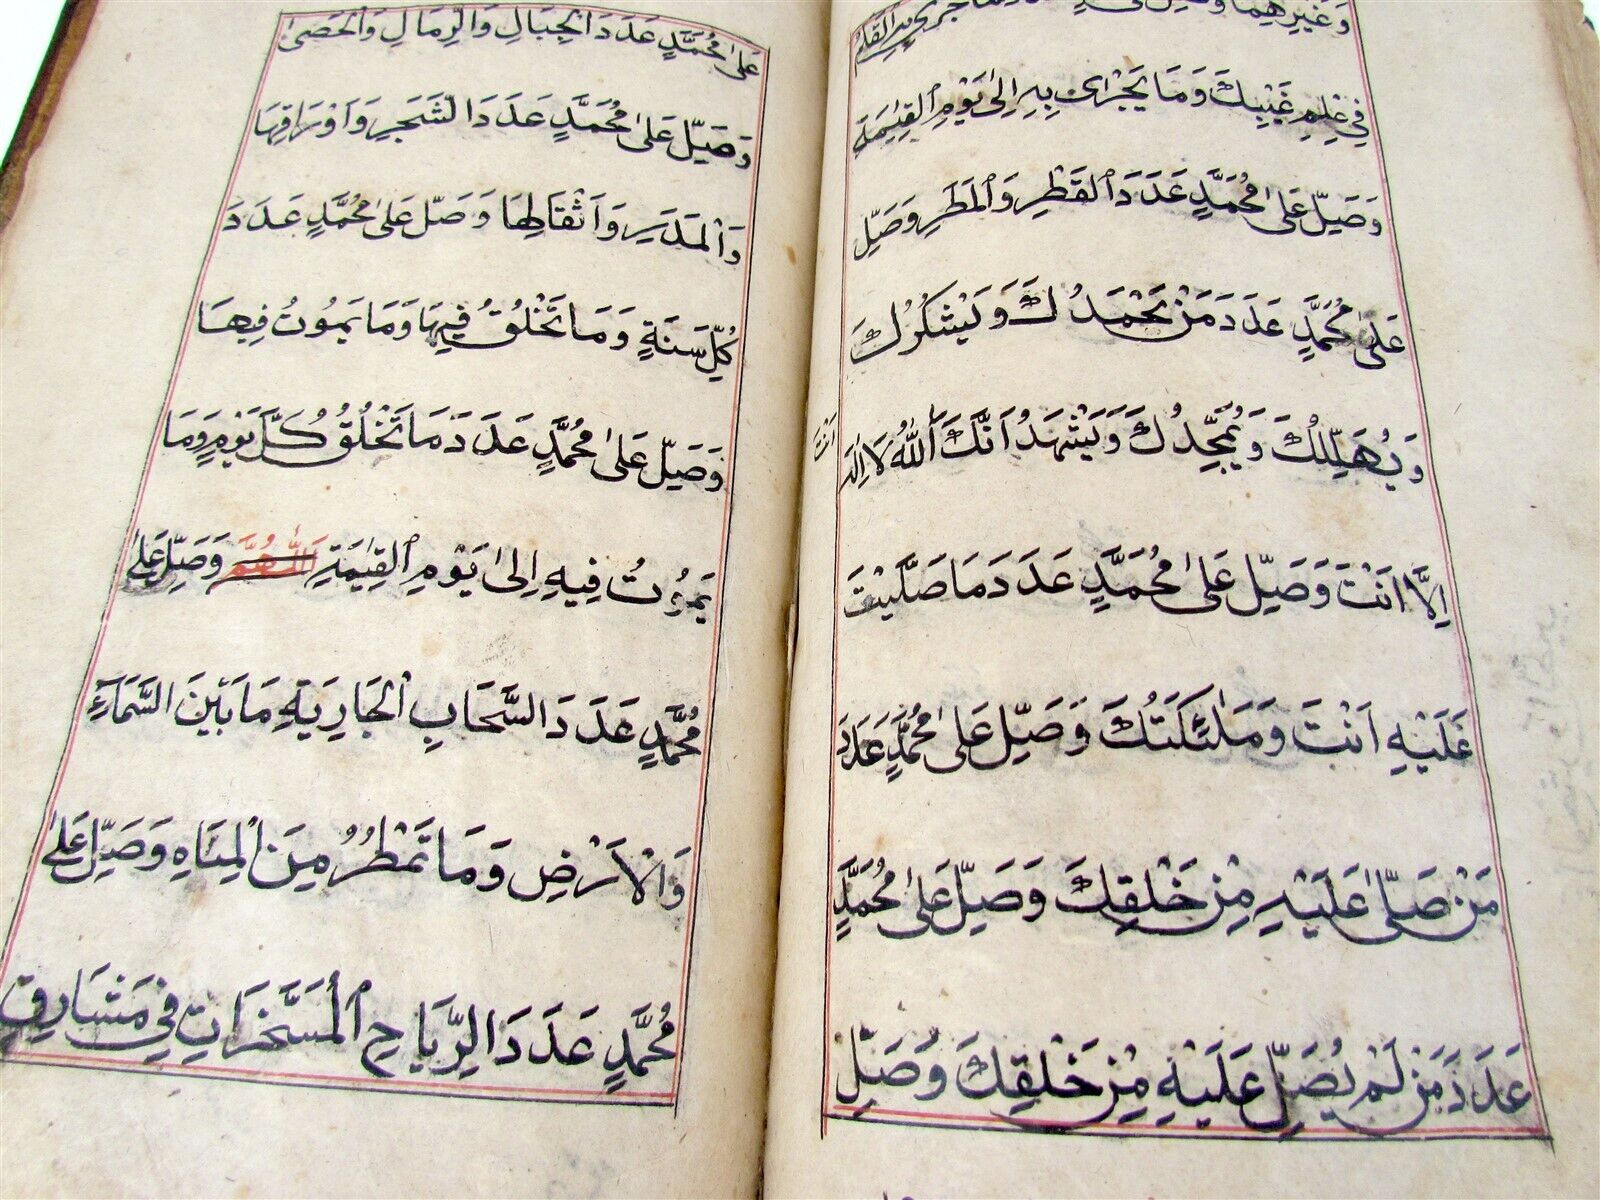 وَغَيْرِهِمَا
فِي عِلْمِ غَيْبِكَ وَمَا يَجْرِى بِهِ اِلىٰ يَوْمِ ٱلْقِيٰمَةِ
وَصَلِّ عَلىٰ مُحَمَّدٍ عَدَدَ ٱلْقَطْرِ وَٱلْمَطَرِ وَصَلِّ
عَلىٰ مُحَمَّدٍ عَدَدَ مَنْ يَحْمَدُكَ وَيَشْكُرُكَ
وَيُهَلِّلُكَ وَيُمَجِّدُكَ وَيَشْهَدُ اَنَّكَ اَللّٰهُ لَا اِلٰهَ
اَنْتَ
اِلَّا اَنْتَ وَصَلِّ عَلىٰ مُحَمَّدٍ عَدَدَ مَا صَلَّيْتَ
عَلَيْهِ اَنْتَ وَمَلٰئِكَتُكَ وَصَلِّ عَلىٰ مُحَمَّدٍ عَدَدَ
مَنْ صَلّىٰ عَلَيْهِ مِنْ خَلْقِكَ وَصَلِّ عَلىٰ مُحَمَّدٍ
عَدَدَ مَنْ لَمْ يُصَلِّ عَلَيْهِ مِنْ خَلْقِكَ وَصَلِّ
عَلىٰ مُحَمَّدٍ عَدَدَ الْجِبَالِ وَالرِّمَالِ وَالْحَصىٰ
وَصَلِّ عَلىٰ مُحَمَّدٍ عَدَدَ الشَّجَرِ وَاَوْرَاقِهَا
وَالْمَدَرِ وَاَثْقَالِهَا وَصَلِّ عَلىٰ مُحَمَّدٍ عَدَدَ
كُلِّ سَنَةٍ وَمَا تَخْلُقُ فِيهَا وَمَا يَمُوتُ فِيهَا
وَصَلِّ عَلىٰ مُحَمَّدٍ عَدَدَ مَا تَخْلُقُ كُلَّ يَوْمٍ وَمَا
يَمُوتُ فِيهِ اِلىٰ يَوْمِ ٱلْقِيٰمَةِ اَللّٰهُمَّ وَصَلِّ عَلىٰ
مُحَمَّدٍ عَدَدَ السَّحَابِ الْجَارِيَةِ مَا بَيْنَ السَّمَآءِ
وَالْاَرْضِ وَمَا تَمْطُرُ مِنَ الْمِيَاهِ وَصَلِّ عَلىٰ
مُحَمَّدٍ عَدَدَ الرِّيَاحِ ٱلْمُسَخَّرَاتِ فِي مَشَارِقِ